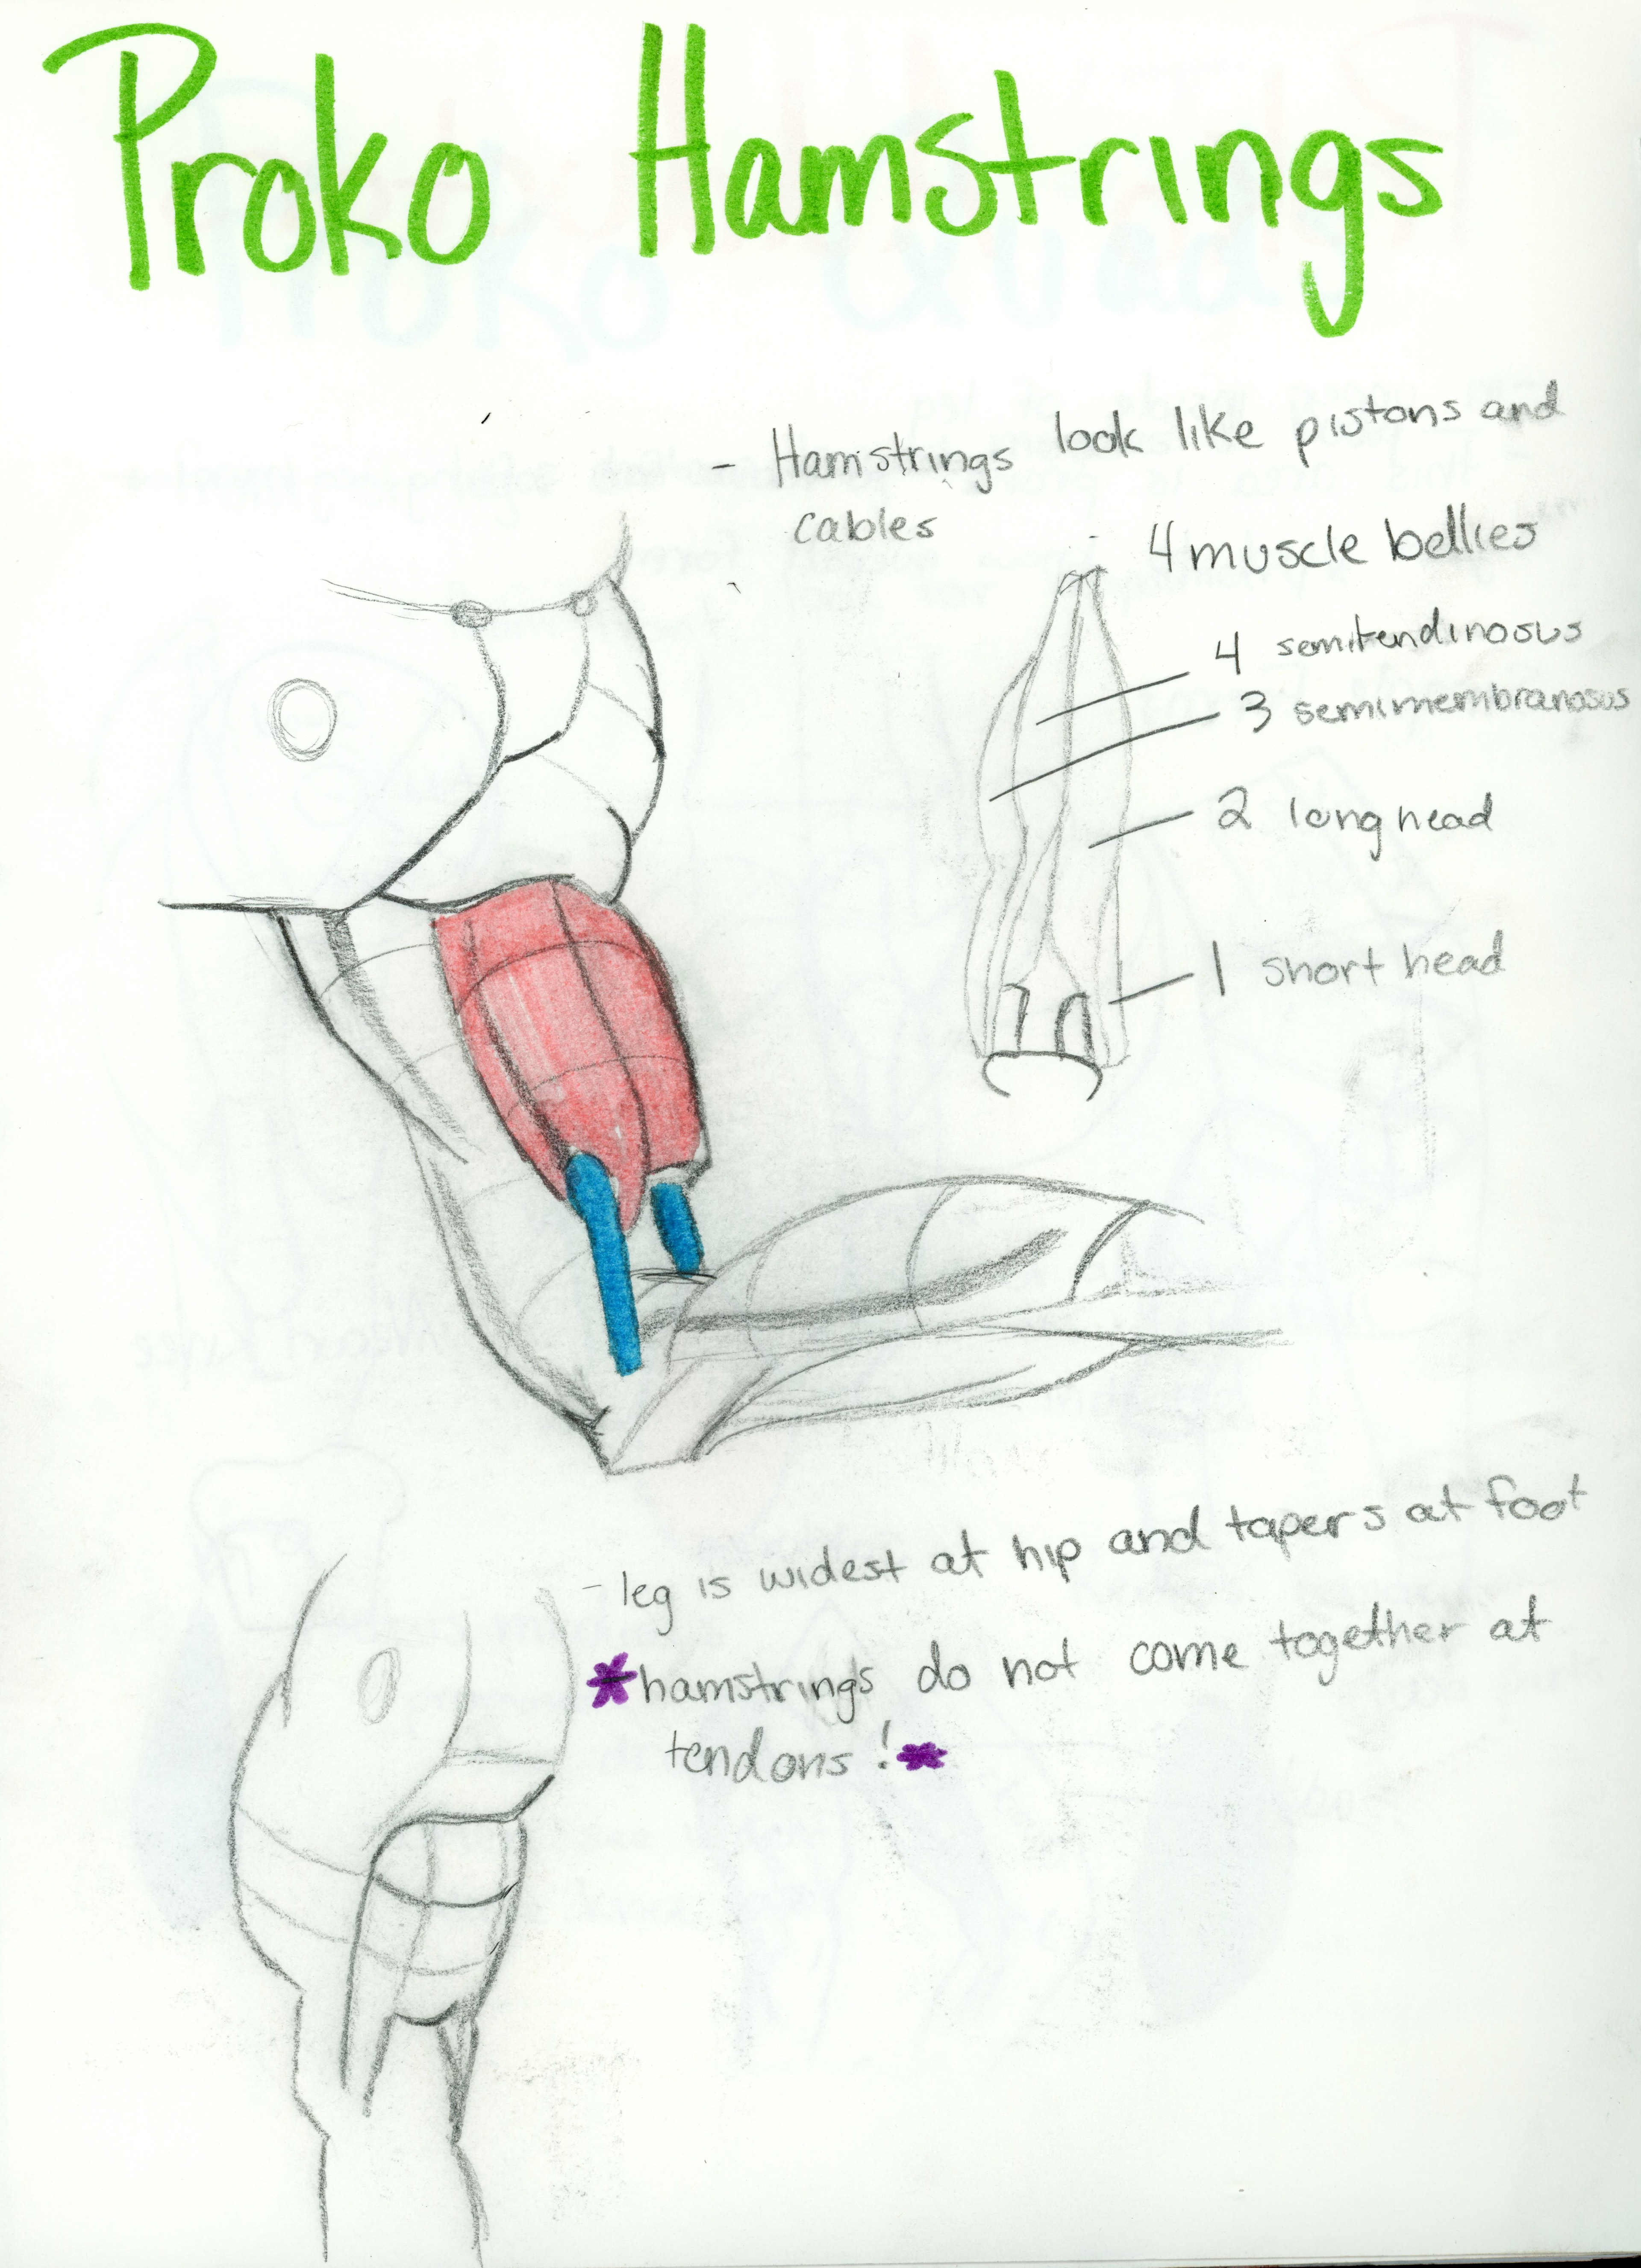 Proko Hamstrings
- Hamstrings look like pistons and
cables
4 muscle bellies
4 semitendinosus
3 semimembranosus
2 long head
1 short head
- leg is widest at hip and tapers at foot
*hamstrings do not come together at
tendons!*